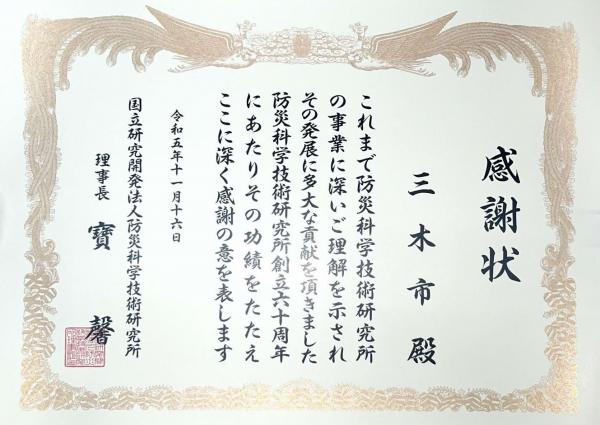 感謝状
三木市殿
これまで防災科学技術研究所
の事業に深いご理解を示され
その発展に多大な貢献を頂きました
防災科学技術研究所創立六十周年
にあたりその功績をたたえ
ここに深く感謝の意を表します
令和五年十一月十六日
国立研究開発法人防災科学技術研究所
理事長 寶 馨